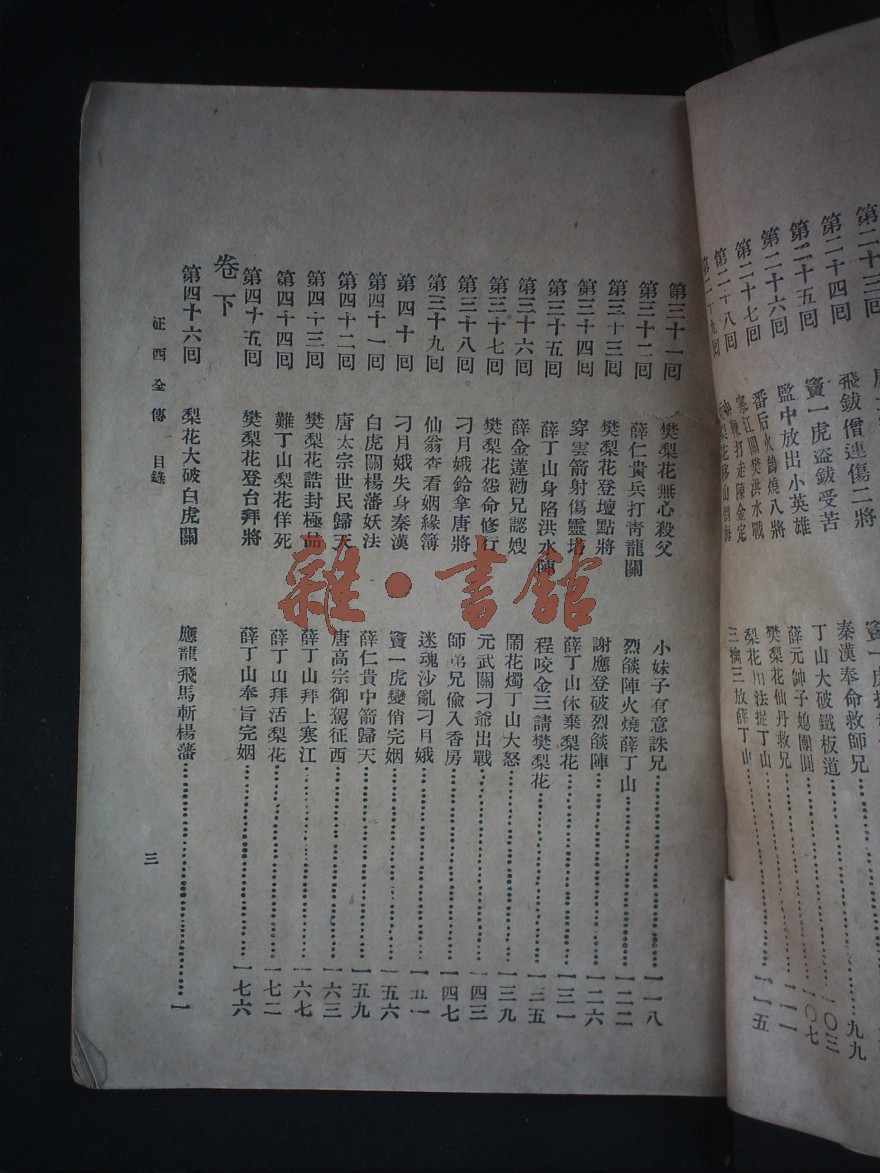 第二十三回
第二十四回 飛鈸僧連傷二將
第二十五回 竇一虎盜鈸受苦 秦漢奉命救師兄 九九
第二十六回 監中放出小英雄 丁山大破鐵板道 一〇三
第二十七回 番后火鵲燒八將 薛元帥子媳團圓 一〇七
第二十八回 寒江關樊洪水戰 樊梨花仙丹救兄 一一一
第二十九回 神鞭打走陳金定 梨花用法捉丁山
三擒三放薛丁山 一一五
第三十一回 樊梨花無心殺父 小妹子有意誅兄 一一八
第三十二回 薛仁貴兵打靑龍關 烈燄陣火燒薛丁山 一二二
第三十三回 樊梨花登壇點將 謝應登破烈燄陣 一二六
第三十四回 穿雲箭射傷靈塔 薛丁山休棄梨花 一三一
第三十五回 薛丁山身陷洪水陣 程咬金三請樊梨花 一三五
第三十六回 薛金蓮勸兄認嫂 鬧花燭丁山大怒 一三九
第三十七回 樊梨花怨命修行 元武關刁爺出戰 一四三
第三十八回 刁月娥鈴拿唐將 師弟兄偸入香房 一四七
第三十九回 仙翁查看姻緣簿 迷魂沙亂刁月娥 一五一
第四十回 刁月娥失身秦漢 竇一虎變俏完姻 一五六
第四十一回 白虎關楊藩妖法 薛仁貴中箭歸天 一五九
第四十二回 唐太宗世民歸天 唐高宗御駕征西 一六三
第四十三回 樊梨花誥封極品 薛丁山拜上寒江 一六七
第四十四回 難丁山梨花佯死 薛丁山拜活梨花 一七二
第四十五回 樊梨花登台拜將 薛丁山奉旨完姻 一七六
卷下
第四十六回 梨花大破白虎關 應龍飛馬斬楊藩 一
征西全傳 目錄 三
雜·書館